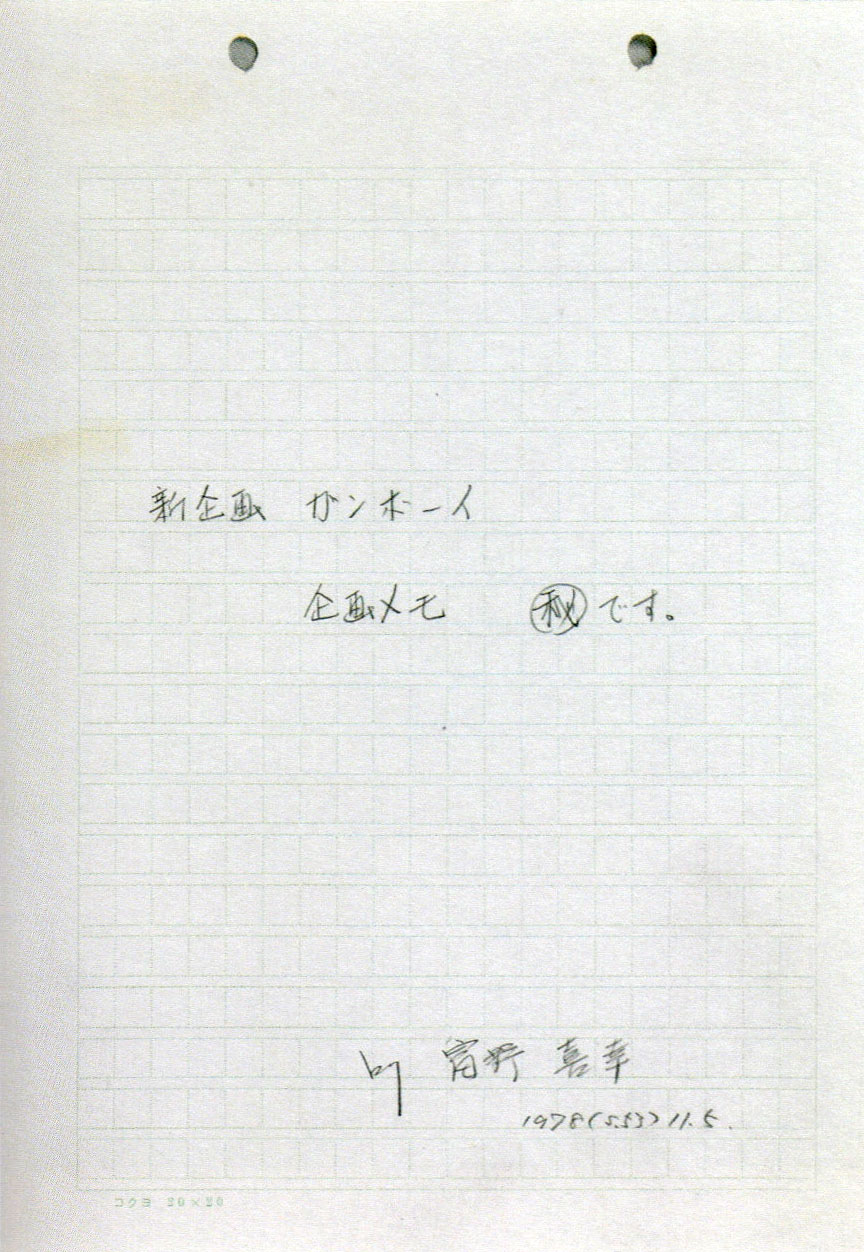 新企画 ガンボーイ
企画メモ ㊙です。
by 富野 喜幸
1978(S.53)11.5.
コクヨ 20×20